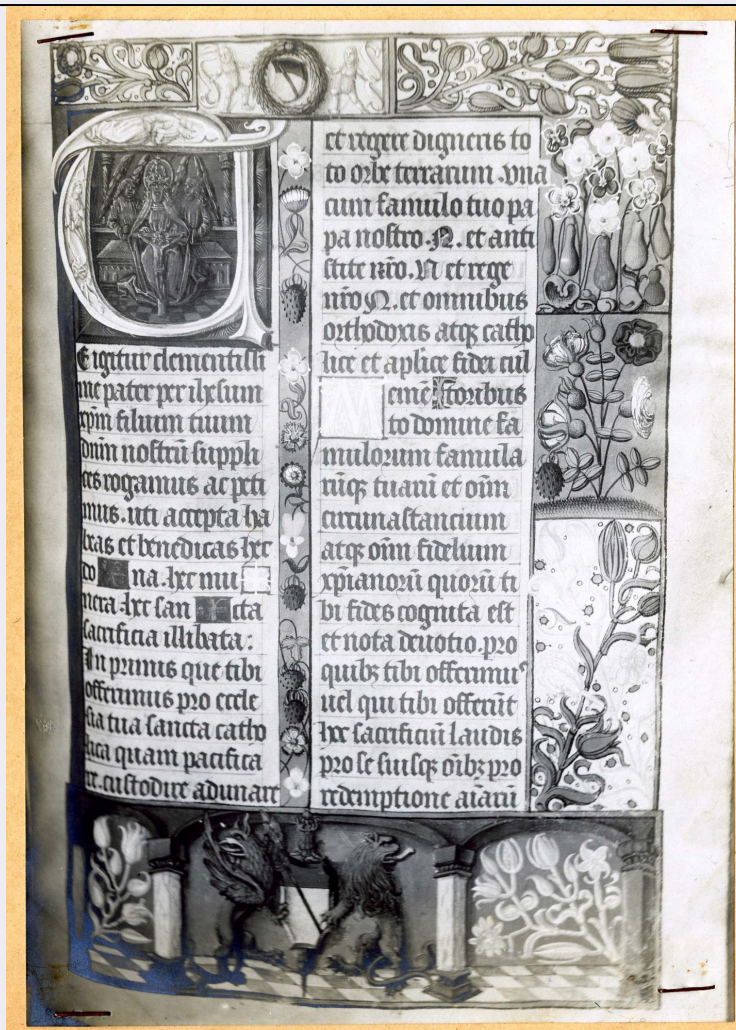 T
E igitur clementissi
me pater per ihesum
xpm filium tuum
dnm nostrū suppli
ces rogamus ac peti
mus. uti accepta ha
beas et benedicas hec
do ✠ na. hec mu ✠
nera. hec san ✠ cta
sacrificia illibata:
In primis que tibi
offerimus pro eccle
sia tua sancta catho
lica quam pacifica
re. custodire adunare
et regere digneris to
to orbe terrarum. vna
cum famulo tuo pa
pa nostro. N. et anti
stite nr̄o. N et rege
nr̄o N. et omnibus
orthodoxis atq; catho
lice et aplice fidei cul
Memē toribus
to domine fa
mulorum famula
rūq; tuarū et oīm
circunastancium
atq; oīm fidelium
xpianorū quorū ti
bi fides cognita est
et nota deuotio. pro
quibz tibi offerimuꝰ
uel qui tibi offerūt
hec sacrificiū laudis
pro se suisq; oībz pro
redemptione aīarū